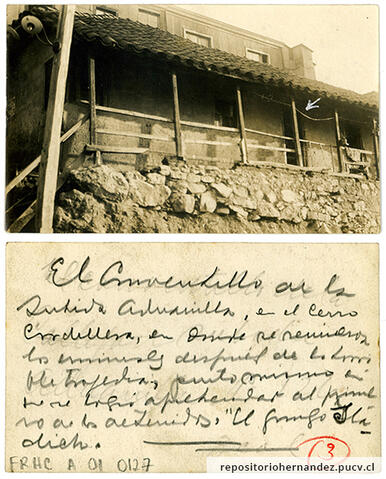 El Conventillo de la
Subida Aduanilla, en el Cerro
Cordillera, en donde se reunieron
los criminales después de la horri-
ble tragedia, punto mismo en
que se logró aprehender al prime-
ro de los detenidos, "El gringo
dich.
3
FRHC A 01 0127
repositoriohernandez.pucv.cl